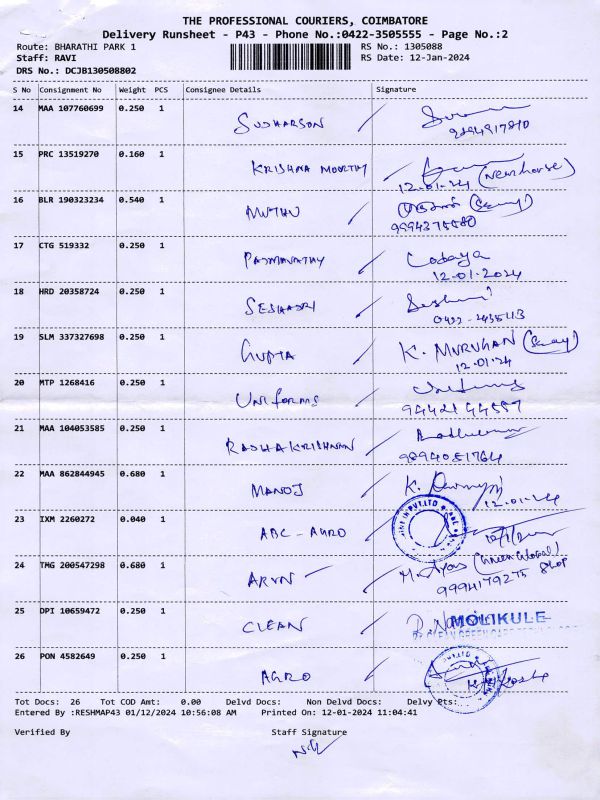 THE PROFESSIONAL COURIERS, COIMBATORE
Delivery Runsheet - P43 - Phone No.:0422-3505555 - Page No.:2
Route: BHARATHI PARK 1 RS No.: 1305088
Staff: RAVI RS Date: 12-Jan-2024
DRS No.: DCJB130508802
S No Consignment No Weight PCS Consignee Details Signature
14 MAA 107760699 0.250 1 SUDHARSON
15 PRC 13519270 0.160 1 KRISHNA MOORTHY
12-01-24 (New house)
16 BLR 190323234 0.540 1 MUTHU
9994375580
17 CTG 519332 0.250 1 PADMAVATHY
12-01-2024
18 HRD 20358724 0.250 1 SESHADRI
0422-2435113
19 SLM 337327698 0.250 1 GUPTA K. MURUGAN
12.01.24
20 MTP 1268416 0.250 1 UNIFORMS
21 MAA 104053585 0.250 1 RADHAKRISHNAN
9894051764
22 MAA 862844945 0.680 1 MANOJ
12-01-24
23 IXM 2260272 0.040 1 ABC - AGRO
24 TMG 200547298 0.680 1 ARUN
9994179275
25 DPI 10659472 0.250 1 CLEAN MOLIKULE
26 PON 4582649 0.250 1 AGRO
Tot Docs: 26 Tot COD Amt: 0.00 Delvd Docs: Non Delvd Docs: Delvy Pts:
Entered By :RESHMAP43 01/12/2024 10:56:08 AM Printed On: 12-01-2024 11:04:41
Verified By Staff Signature